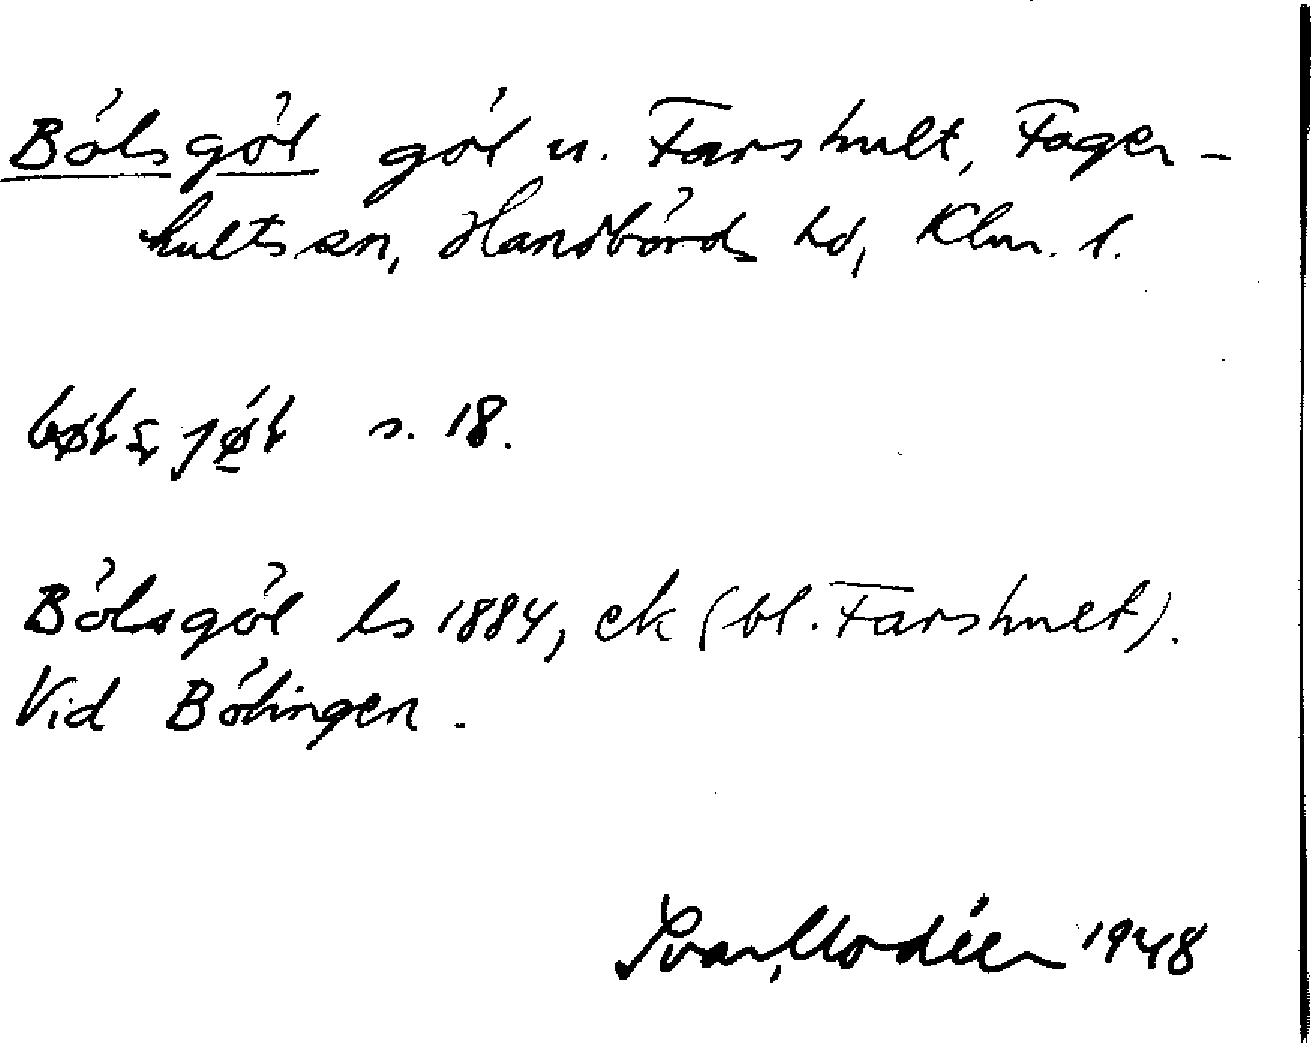 Bölsgöl göl u. Farshult, Fager-
hults sn, Handbörds hd, Klm. l.
s. 18.
Bölsgöl ls 1884, ek (bl. Farshult).
Vid Bölingen.
Ivar Modéer 1948